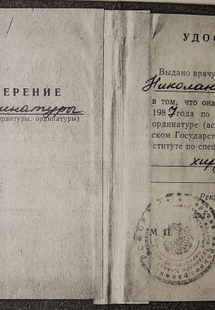 ЕРЕНИЕ
инатуры
рантуры, ординатуры)
УДОС
Выдано врачу
Николан
в том, что она
1987 года по
ординатуре (ас
ском Государст
ституте по спец
хир
Рек
М. П.